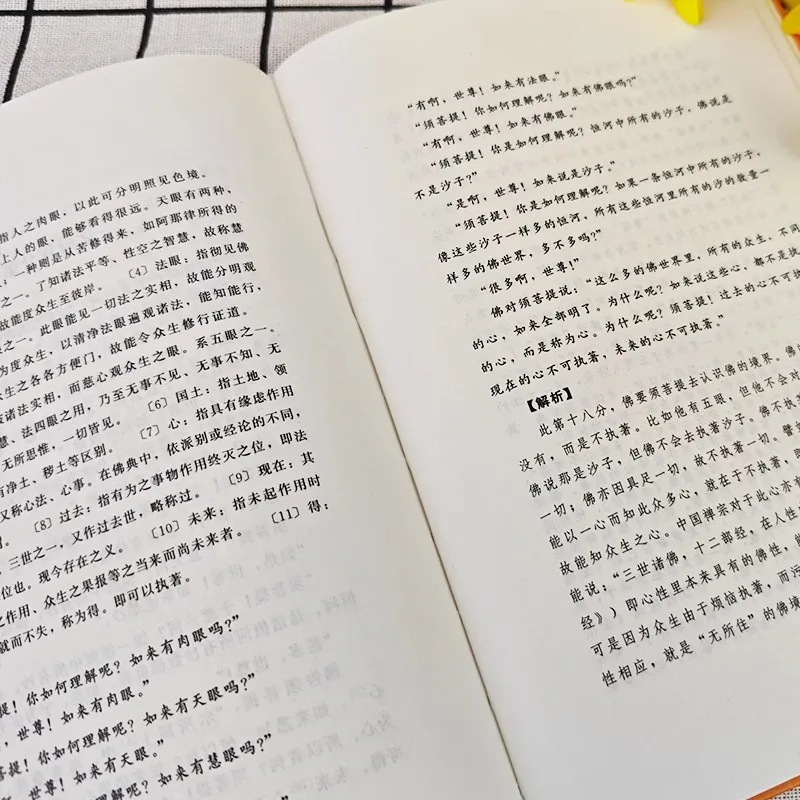 指人之肉眼，以此可分明照见色境。
上人的眼，能够看得很远。天眼有两种，
，一种则是从苦修得来，如阿那律所得的
之一。了知诸法平等、性空之智慧，故称慧
故能度众生至彼岸。〔4〕法眼：指彻见佛
之一。此眼能见一切法之实相，故能分明观
为度众生，以清净法眼遍观诸法，能知能行，
众生之各各方便门，故能令众生修行证道。
诸法实相，而慈心观众生之眼。系五眼之一。
慧、法四眼之用，乃至无事不见、无事不知、无
无所思惟，一切皆见。〔6〕国土：指土地、领
有净土、秽土等区别。〔7〕心：指具有缘虑作用
又称心法、心事。在佛典中，依派别或经论的不同，
〔8〕过去：指有为之事物作用终灭之位，即法
三世之一，又作过去世，略称过。〔9〕现在：其
位也。现今存在之义。〔10〕未来：指未起作用时
之作用、众生之果报等之当来而尚未来者。〔11〕得：
就而不失，称为得。即可以执著。
提！你如何理解呢？如来有肉眼吗？”
，世尊！如来有肉眼。”
菩提！你如何理解呢？如来有天眼吗？”
，世尊！如来有天眼。”
菩提！你如何理解呢？如来有慧眼吗？”
“有啊，世尊！如来有法眼。”
“须菩提！你如何理解呢？如来有佛眼吗？”
“有啊，世尊！如来有佛眼。”
“须菩提！你是如何理解呢？恒河中所有的沙子，佛说是
不是沙子？”
“是啊，世尊！如来说是沙子。”
“须菩提！你是如何理解呢？如果一条恒河中所有的沙子，
像这些沙子一样多的恒河，所有这些恒河里所有的沙的数量一
样多的佛世界，多不多吗？”
“很多啊，世尊！”
佛对须菩提说：“这么多的佛世界里，所有的众生，不同
的心，如来全部明了。为什么呢？如来说这些心，都不是执
的心，而是称为心。为什么呢？须菩提！过去的心不可执
现在的心不可执著，未来的心不可执著。”
【解析】
此第十八分，佛要须菩提去认识佛的境界。佛
没有，而是不执著。比如他有五眼，但他不会对
佛说那是沙子，但佛不会去执著沙子。佛不执
一切；佛亦因具足一切，故不执著一切。譬
能以一心而知此众多心，就在于不执著，即
故能知众生之心。中国禅宗对于此心亦有
能说：“三世诸佛，十二部经，在人性
经》）即心性里本来具有的佛性，能
可是因为众生由于烦恼执著，而污
性相应，就是“无所住”的佛境